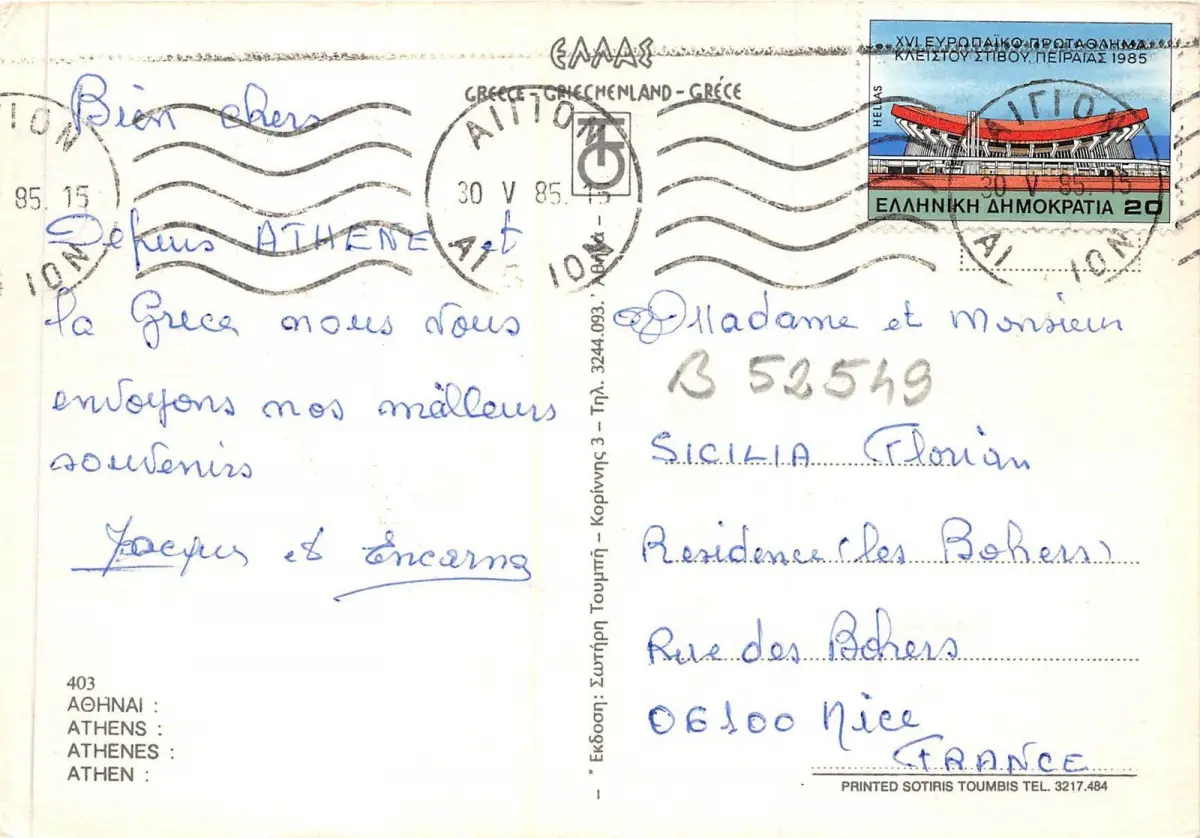 ΕΛΛΑΣ
GREECE - GRIECHENLAND - GRÈCE
XVI ΕΥΡΩΠΑΪΚΟ ΠΡΩΤΑΘΛΗΜΑ
ΚΛΕΙΣΤΟΥ ΣΤΙΒΟΥ, ΠΕΙΡΑΙΑΣ 1985
HELLAS
ΕΛΛΗΝΙΚΗ ΔΗΜΟΚΡΑΤΙΑ 20
ΙΟΝ
85. 15
ΙΟΝ
ΑΙΓΙΟΝ
30 V 85. 15
ΑΙ ΙΟΝ
ΑΙΓΙΟΝ
30 V 85. 15
ΑΙ ΙΟΝ
Bien chers
Depuis ATHENE et
la Grece nous vous
envoyons nos meilleurs
souvenirs
Jacques et Encarna
403
ΑΘΗΝΑΙ :
ATHENS :
ATHENES :
ATHEN :
* Εκδοση: Σωτήρη Τουμπή - Κορίννης 3 - Τηλ. 3244.093. Αθήνα -
Madame et Monsieur
B 52549
SICILIA Florian
Residence (les Bohers)
Rue des Bohers
06100 Nice
FRANCE
PRINTED SOTIRIS TOUMBIS TEL. 3217.484